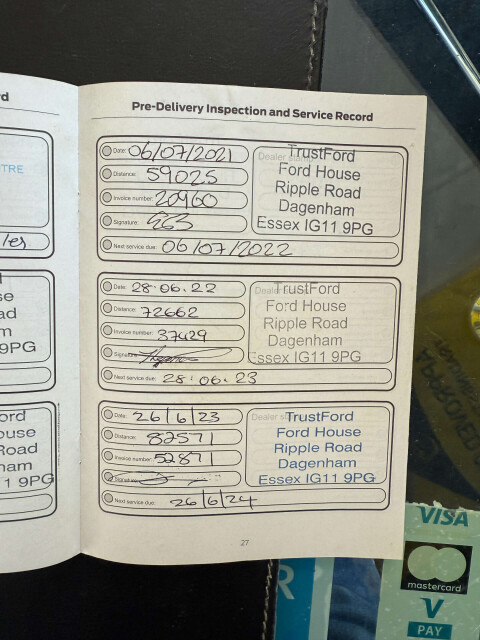 rd
TRE
les
se
m
9PG
ord
ouse
Road
ham
1 9PG
Pre-Delivery Inspection and Service Record
Date: 06/07/2021
Distance: 59025
Invoice number: 20960
Signature:
Next service due: 06/07/2022
Dealer stamp
TrustFord
Ford House
Ripple Road
Dagenham
Essex IG11 9PG
Date: 28.06.22
Distance: 72662
Invoice number: 37429
Signature
Next service due: 28.06.23
Dealer
TrustFord
Ford House
Ripple Road
Dagenham
Essex IG11 9PG
Date: 26/6/23
Distance: 82571
Invoice number: 52871
Signature
Next service due: 26/6/24
Dealer stamp
TrustFord
Ford House
Ripple Road
Dagenham
Essex IG11 9PG
27
VISA
mastercard
V
PAY
R